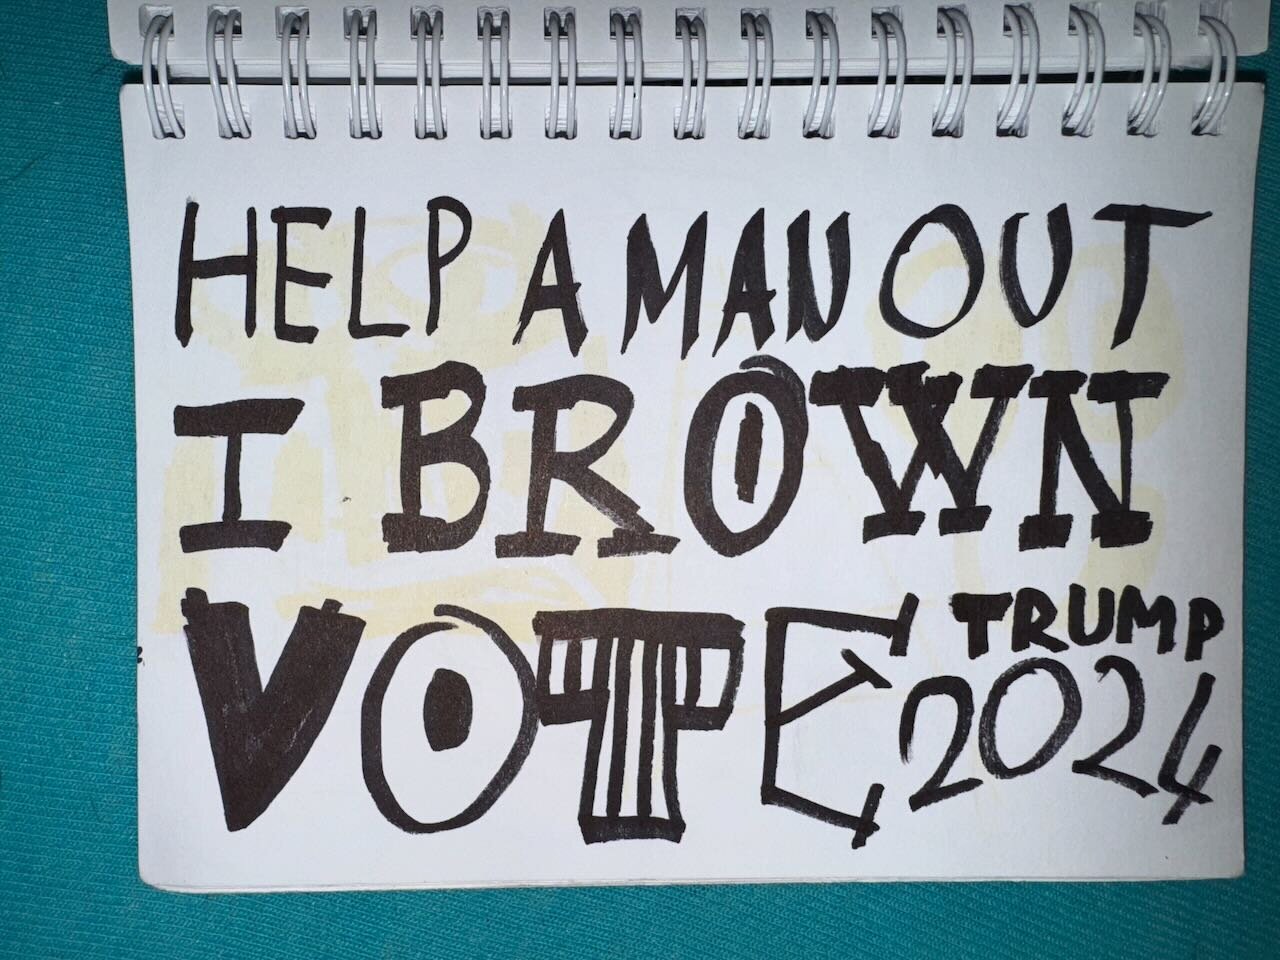 HELP A MAN OUT
I BROWN
VOTE TRUMP
2024